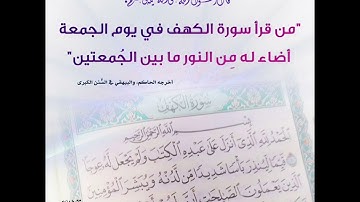 "من قرأ سورة الكهف في يوم الجمعة
أضاء له مِن النور ما بين الجُمعتين"
أخرجه الحاكم، والبيهقي في السُّنن الكبرى
سورة الكهف
بسم الله الرحمن الرحيم
الحمد لله الذي أنزل على عبده الكتب ولم يجعل له عوجا
قيما لينذر بأسا شديدا من لدنه ويبشر المؤمنين
الذين يعملون الصلحت